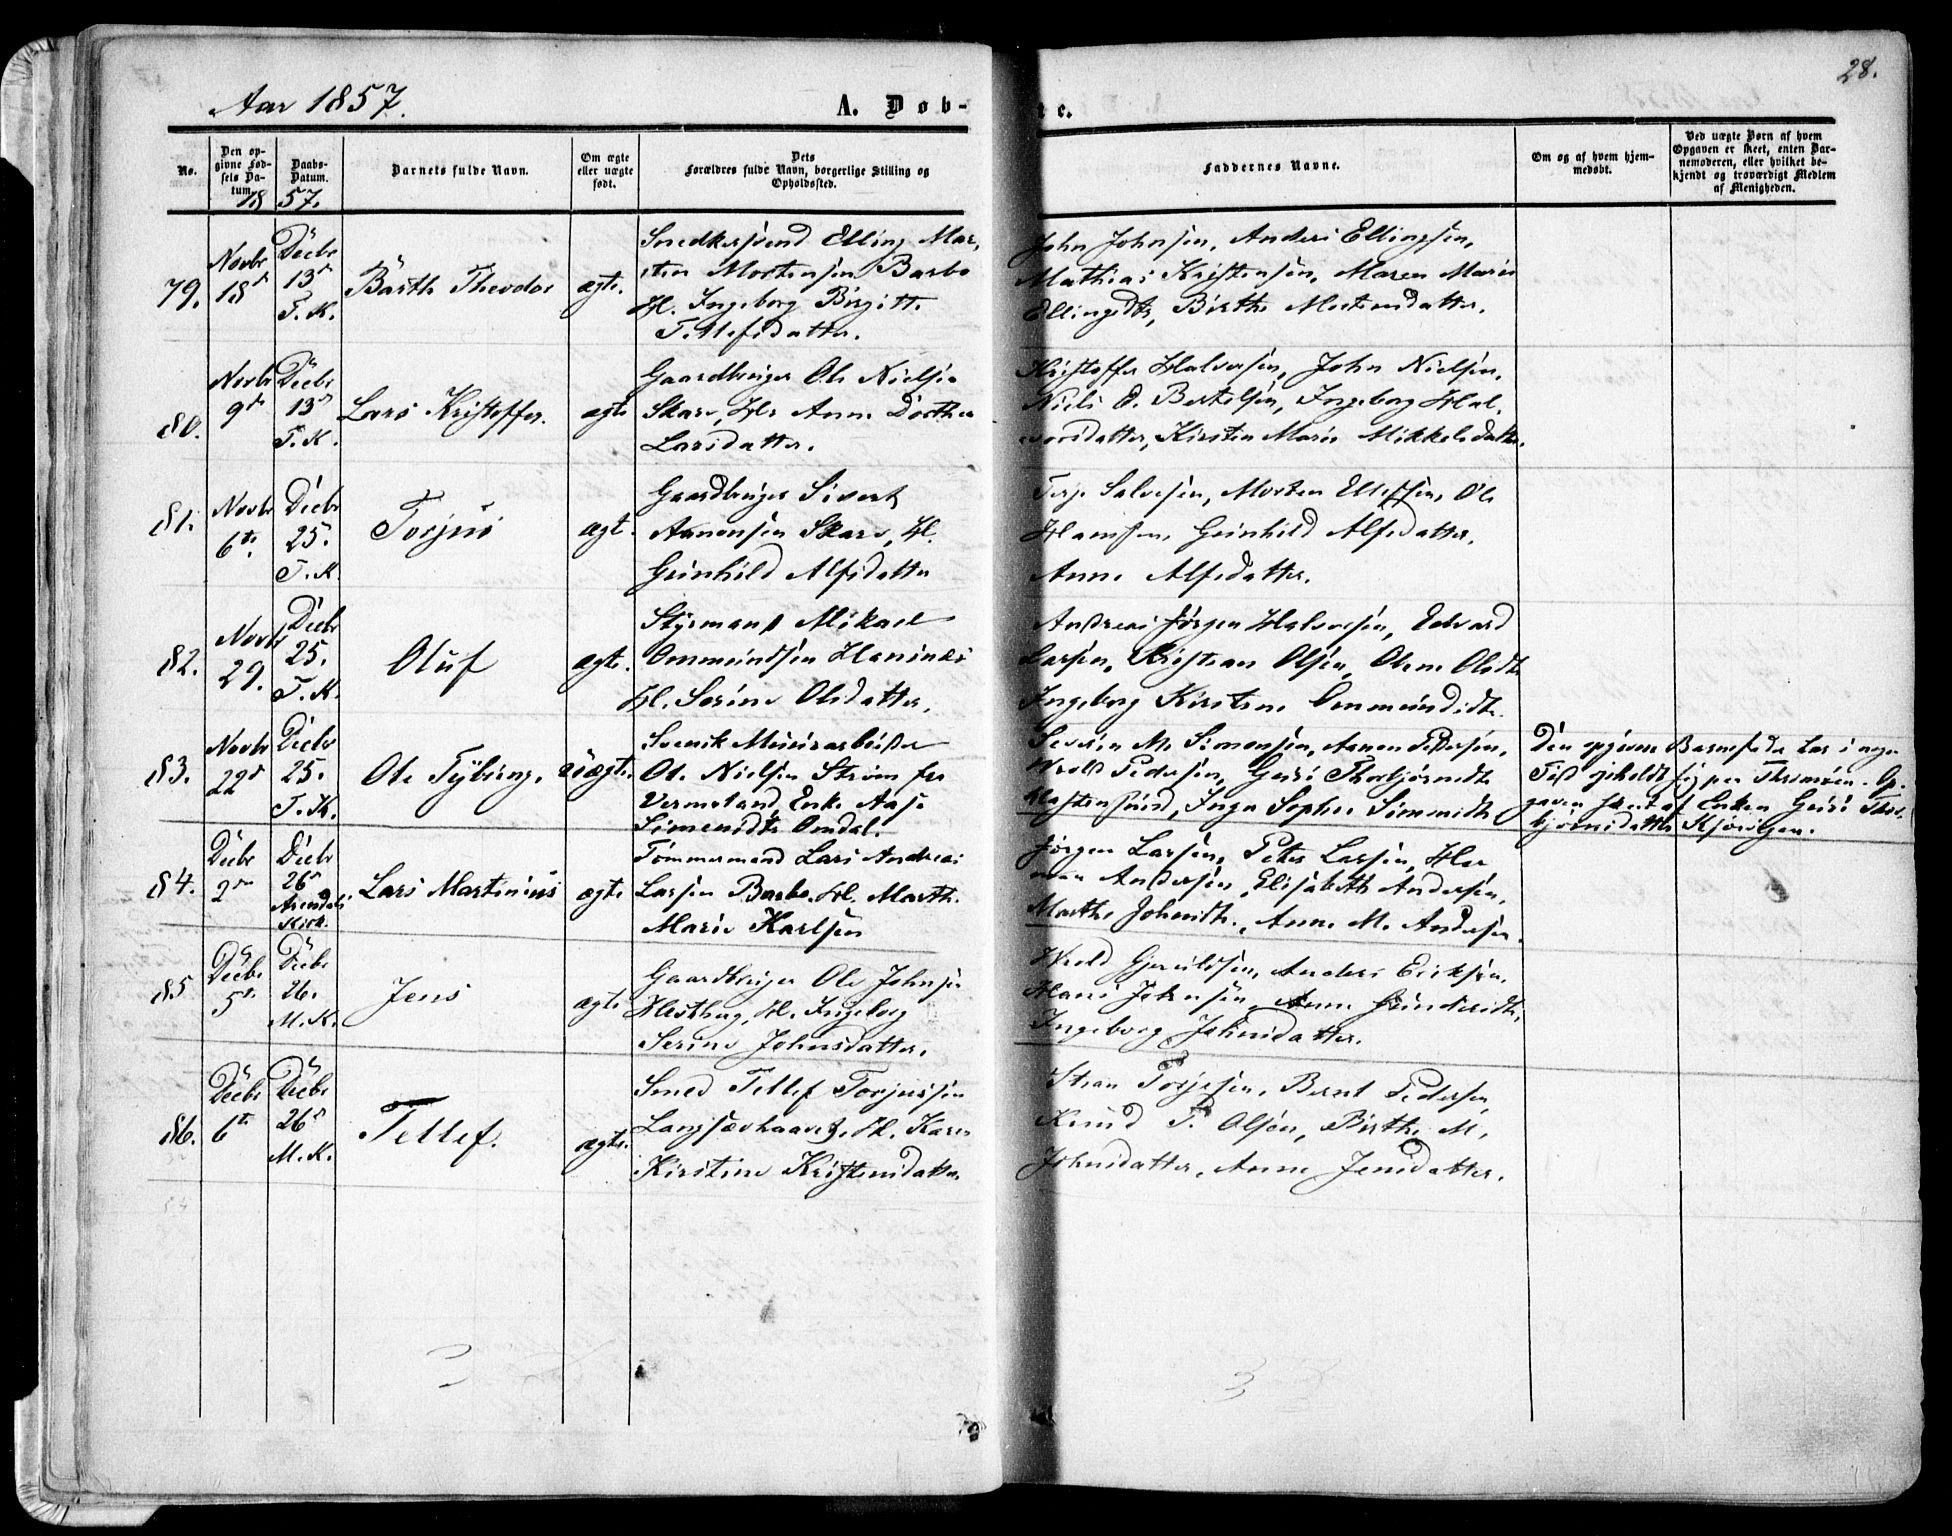 28.
Aar 1857.
A. Døb-
te.
No.
Den op-
givne Fød-
sels Da-
tum.
Daabs-
Datum.
Barnets fulde Navn.
Om ægte
eller uægte
født.
Dets
Forældres fulde Navn, borgerlige Stilling og
Opholdssted.
Faddernes Navne.
Om og af hvem hjem-
medøbt.
Ved uægte Børn af hvem
Opgaven er skeet, enten Bar-
nemoderen, eller hvilket be-
kjendt og troværdigt Medlem
af Menigheden.
18 57.
79.
Novbr
18d
Decbr
13d
T. K.
Barth Theodor
ægte.
Snedkersvend Elling Mar-
Mortensen Barbo
H. Ingeborg Birgitte
Tellefsdatter.
John Johnsen, Anders Ellingsen,
Mathias Kristensen, Maren Marie
Ellingsdtr, Birthe Mortensdatter.
80.
Novbr
9de
Decbr
13d
T. K.
Lars Kristoffer.
ægte
Gaardbruger Ole Nielsen
Skare, H. Anne Dorthea
Larsdatter.
Kristoffer Halvorsen, John Nielsen,
Niels E. Bertelsen, Ingeborg Hal-
vorsdatter, Kirsten Marie Mikkelsdatter.
81.
Novbr
6te.
Decbr
25.
T. K.
Torjus
ægte.
Gaardbruger Sivert
Aanonsen Skare, H.
Gunhild Alfsdatter
Terje Salvesen, Morten Ellefsen, Ole
Hansen, Gunhild Alfsdatter,
Anne Alfsdatter.
82.
Novbr
29.
Decbr
25.
T. K.
Oluf
ægte.
Styrmand Mikael
Ommundsen
H. Serine Olsdatter.
Andreas Jørgen Halvorsen, Edvard
Larsen, Kristian Olsen, Olene Olsdtr
Ingeborg Kirstine Ommundsdtr.
83.
Novbr
22d
Decbr
25.
T. K.
Ole Tybring.
uægte.
Svensk Muurarbeider
Ole Nielsen Strøm fra
Vermeland, Enke Aase
Simensdtr Omdal.
Severin M. Simonsen, Aanon Pedersen,
Pedersen, Guro Thorbjørnsdtr
Inga Sophie Simensdtr
Den opgivne Barnefader har i nogen
Tid opholdt sig paa Thromøen. Op-
gaven skeet af Enken Guro Thor-
bjørnsdatter
84.
Decbr
2den
Decbr
26d
Arendals
Kirke.
Lars Martinius
ægte
Tømmermand Lars Andreas
Larsen Barbo. H. Marthe
Marie Karlsen
Jørgen Larsen, Peter Larsen, Her-
man Andersen, Elisabeth Andersen,
Marthe Johnsdtr., Anne M. Andersen.
85
Decbr
5te.
Decbr
26.
M. K.
Jens
ægte
Gaardbruger Ole Johnsen
Hesthag, H. Ingeborg
Serine Johnsdatter.
Anders Ericksen,
Hans Johnsen, Anne
Ingeborg Johnsdatter.
86.
Decbr
6te
Decbr
26d
M. K.
Tellef.
ægte.
Smed Tellef Torjussen
Langsævhaaven. H. Karen
Kirstine Kristensdatter.
Torjesen, Bernt Pedersen,
Knud T. Olsen, Birthe M.
Johnsdatter, Anne Jensdatter.